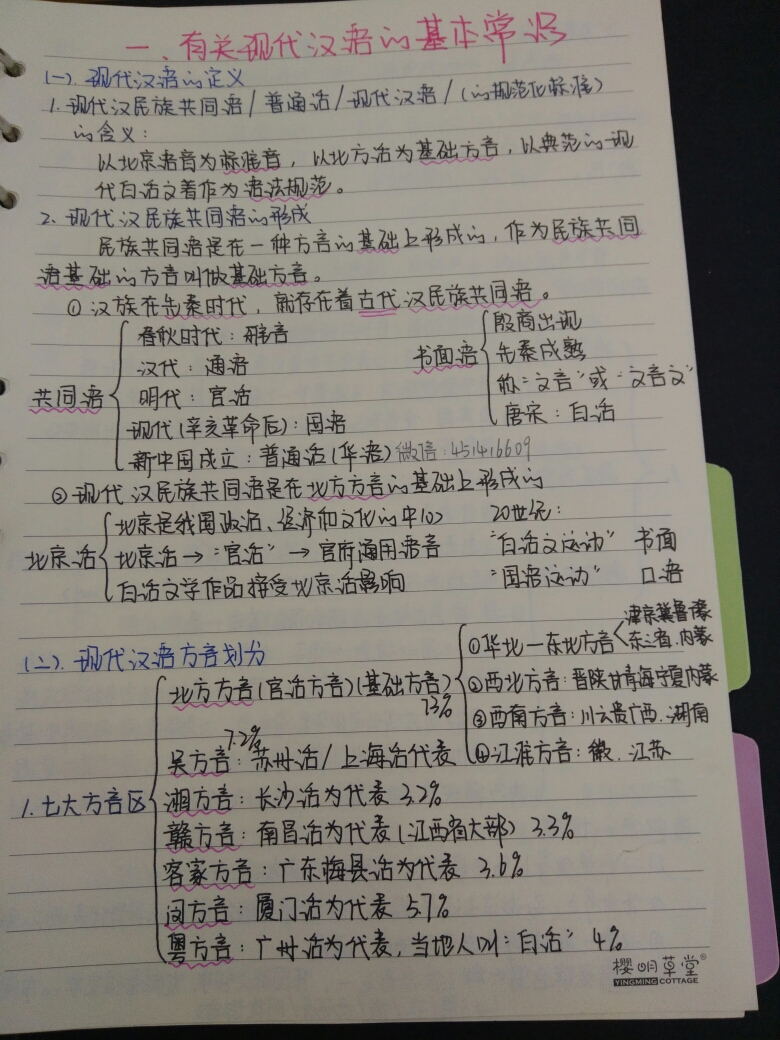 一、有关现代汉语的基本常识
(一).现代汉语的定义
1.现代汉民族共同语/普通话/现代汉语/(的规范化标准)
的含义:
以北京语音为标准音,以北方话为基础方言,以典范的现
代白话文著作为语法规范。
2.现代汉民族共同语的形成
民族共同语是在一种方言的基础上形成的,作为民族共同
语基础的方言叫做基础方言。
①汉族在先秦时代,就存在着古代汉民族共同语。
共同语
春秋时代:雅言
汉代:通语
明代:官话
现代(辛亥革命后):国语
新中国成立:普通话(华语)微信:451416609
书面语
殷商出现
先秦成熟
称“文言”或“文言文”
唐宋:白话
②现代汉民族共同语是在北方方言的基础上形成的
北京话
北京是我国政治、经济和文化的中心
北京话→“官话”→官府通用语言
白话文学作品接受北京话影响
20世纪:
“白话文运动” 书面
“国语运动” 口语
(二).现代汉语方言划分
1.七大方言区
北方方言(官话方言)(基础方言)
73%
①华北—东北方言
津京冀鲁豫
东三省.内蒙
②西北方言:晋陕甘青海宁夏内蒙
③西南方言:川云贵广西.湖南
④江淮方言:徽.江苏
7.2%
吴方言:苏州话/上海话代表
湘方言:长沙话为代表 3.2%
赣方言:南昌话为代表(江西省大部) 3.3%
客家方言:广东梅县话为代表 3.6%
闽方言:厦门话为代表 5.7%
粤方言:广州话为代表,当地人叫“白话” 4%
樱明草堂®
YINGMING COTTAGE